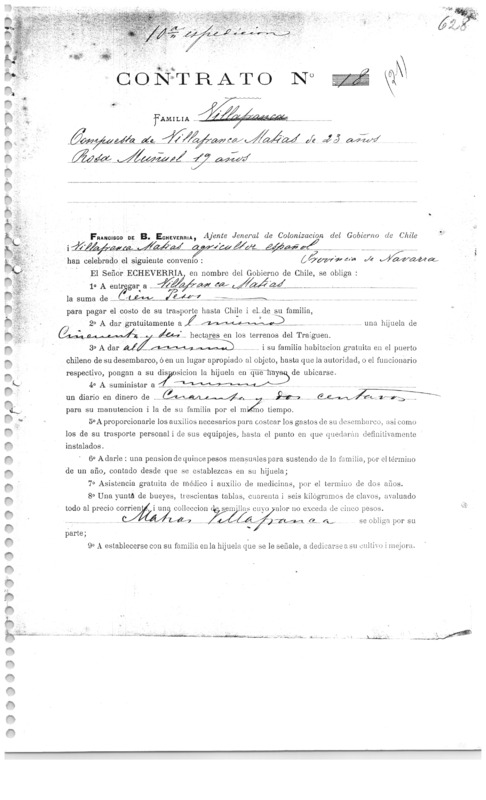 10ª espedicion
628
CONTRATO Nº 18 (21)
FAMILIA Villafranca
Compuesta de Villafranca Matias de 23 años
Rosa Muñuel 19 años
FRANCISCO DE B. ECHEVERRIA, Ajente Jeneral de Colonizacion del Gobierno de Chile
i Villafranca Matias agricultor español
han celebrado el siguiente convenio : Provincia de Navarra
El Señor ECHEVERRIA, en nombre del Gobierno de Chile, se obliga :
1º A entregar a Villafranca Matias
la suma de Cien Pesos
para pagar el costo de su trasporte hasta Chile i el de su familia,
2º A dar gratuitamente a l mismo una hijuela de
Cincuenta y seis hectares en los terrenos del Traiguen.
3º A dar al mismo i su familia habitacion gratuita en el puerto
chileno de su desembarco, ó en un lugar apropiado al objeto, hasta que la autoridad, o el funcionario
respectivo, pongan a su disposicion la hijuela en que hayan de ubicarse.
4º A suministar a l mismo
un diario en dinero de Cuarenta y dos centavos
para su manutencion i la de su familia por el mismo tiempo.
5º A proporcionarle los auxilios necesarios para costear los gastos de su desembarco, asi como
los de su trasporte personal i de sus equipajes, hasta el punto en que quedarán definitivamente
instalados.
6º A darle : una pension de quince pesos mensuales para sustendo de la familia, por el término
de un año, contado desde que se establezcas en su hijuela ;
7º Asistencia gratuita de médico i auxilio de medicinas, por el termino de dos años.
8º Una yunta de bueyes, trescientas tablas, cuarenta i seis kilogramos de clavos, avaluado
todo al precio corriente, i una colleccion de semillas cuyo valor no exceda de cinco pesos.
Matias Villafranca se obliga por su
parte ;
9º A establecerse con su familia en la hijuela que se le señale, a dedicarse a su cultivo i mejora.